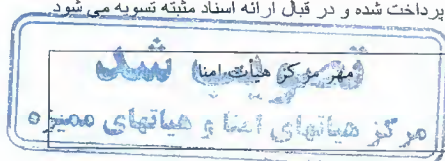 پرداخت شده و در قبال ارائه اسناد مثبته تسویه می شود
تصویب شد
مهر مرکز هیأت امنا
مرکز هیاتهای امنا و هیاتهای ممیزه